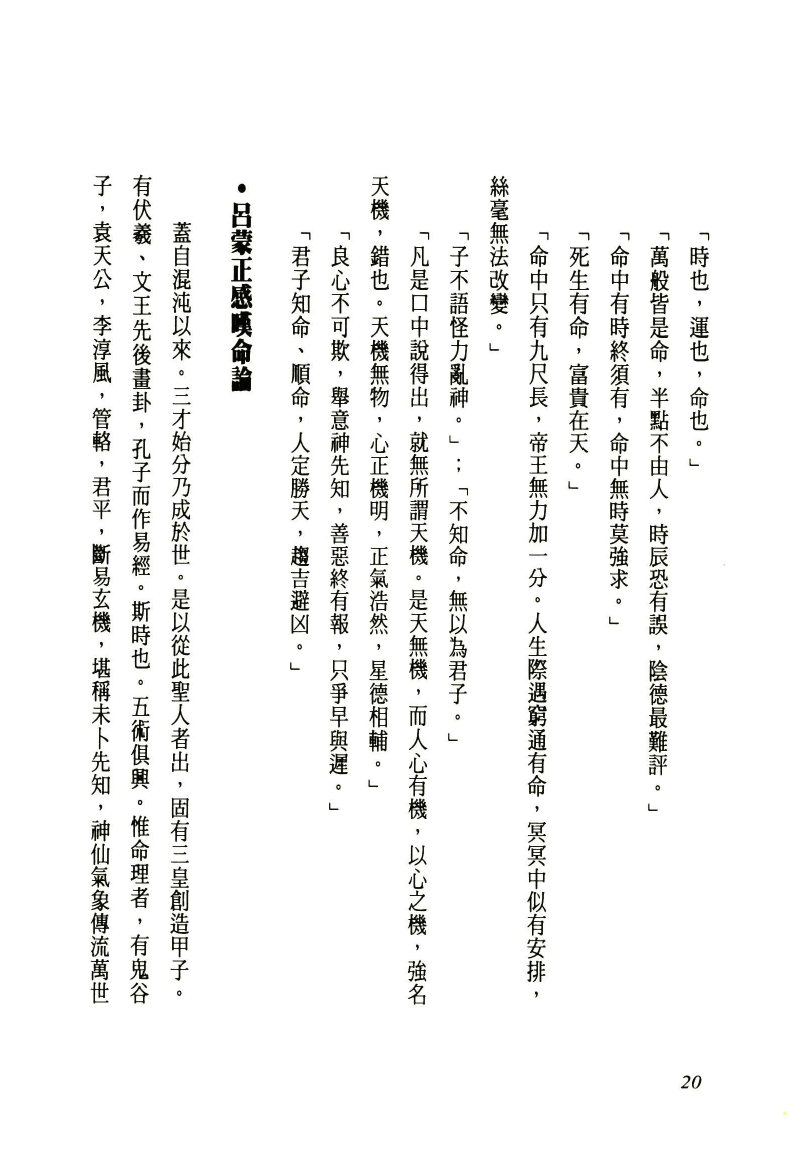 「時也，運也，命也。」
「萬般皆是命，半點不由人，時辰恐有誤，陰德最難評。」
「命中有時終須有，命中無時莫強求。」
「死生有命，富貴在天。」
「命中只有九尺長，帝王無力加一分。人生際遇窮通有命，冥冥中似有安排，
絲毫無法改變。」
「子不語怪力亂神。」；「不知命，無以為君子。」
「凡是口中說得出，就無所謂天機。是天無機，而人心有機，以心之機，強名
天機，錯也。天機無物，心正機明，正氣浩然，星德相輔。」
「良心不可欺，舉意神先知，善惡終有報，只爭早與遲。」
「君子知命、順命，人定勝天，趨吉避凶。」
•呂蒙正感嘆命論
蓋自混沌以來。三才始分乃成於世。是以從此聖人者出，固有三皇創造甲子。
有伏羲、文王先後畫卦，孔子而作易經。斯時也。五術俱興。惟命理者，有鬼谷
子，袁天公，李淳風，管輅，君平，斷易玄機，堪稱未卜先知，神仙氣象傳流萬世
20